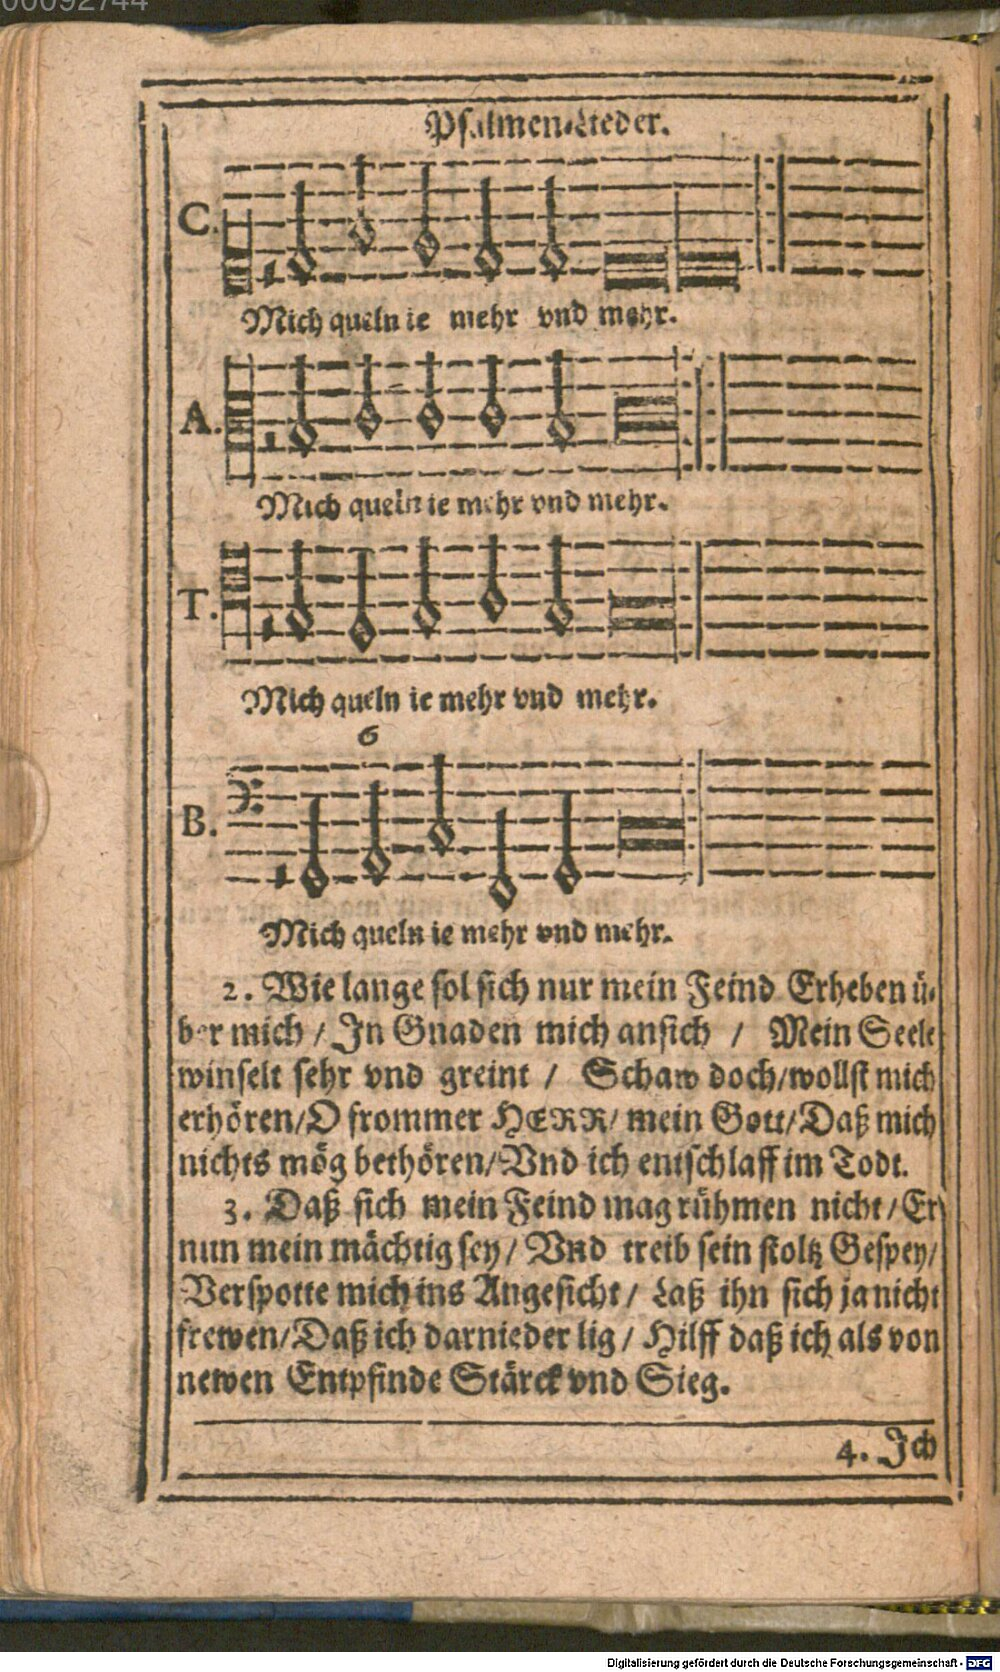 00092744
Psalmen-Lieder.
C.
Mich queln ie mehr vnd mehr.
A.
Mich queln ie mehr vnd mehr.
T.
Mich queln ie mehr vnd mehr.
6
B.
Mich queln ie mehr vnd mehr.
2. Wie lange sol sich nur mein Feind Erheben ü-
ber mich / In Gnaden mich ansich / Mein Seele
winselt sehr vnd greint / Schaw doch/wollst mich
erhören/O frommer HERR/ mein Gott/Daß mich
nichts mög bethören/Vnd ich entschlaff im Todt.
3. Daß sich mein Feind mag rühmen nicht/Er
nun mein mächtig sey/ Vnd treib sein stoltz Gespey/
Verspotte mich ins Angesicht/ Laß ihn sich ja nicht
frewen/Daß ich darnieder lig/ Hilff daß ich als von
newen Entpfinde Stärck vnd Sieg.
4. Ich
Digitalisierung gefördert durch die Deutsche Forschungsgemeinschaft - DFG